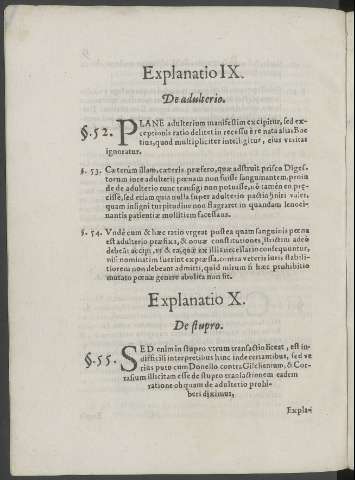 Explanatio IX.
De adulterio.
§. 52. PLANE adulterium manifestim excipitur, sed ex-
ceptionis ratio delitet in recessu
tius, quod multipliciter intelligitur, eius veritas
ignoratur.
§. 53. Cæterùm illam, cæteris præfero, quæ adstruit prisco Diges-
torum iure adulterij pœnam non fuisse sanguinantem, proin
de de adulterio tunc transigi non potuisse, nõ tamen eo præ-
cisse, sed etiam quia nulla super adulterio pactio iniri valet,
quam insigni turpitudine non flagraret in quandam lenoci-
nantis patientiæ mollitiem facessans.
§. 54. Vnde cum & hæc ratio vrgeat postea quam sanguinis pœna
est adulterio præfixa, & nouæ constitutiones, strictim adeò
debeãt accipi, vt & ea, quæ ex illis necessariò consequuntur,
nisi nominatim fuerint expressa, contra veteris iuris stabili-
tiorem non debeant admitti, quid mirum si hæc prohibitio
mutato pœnæ genere abolita non sit.
Explanatio X.
De stupro.
§. 55. SED enim in stupro vtrum transactio liceat, est in-
difficili interpretibus hinc inde certantibus, sed ve
rius puto cum Donello contra Gilckenium, & Cor-
rasium illicitam esse de stupro transactionem eadem
ratione ob quam de adulterio prohi-
beri diximus,
Expla-